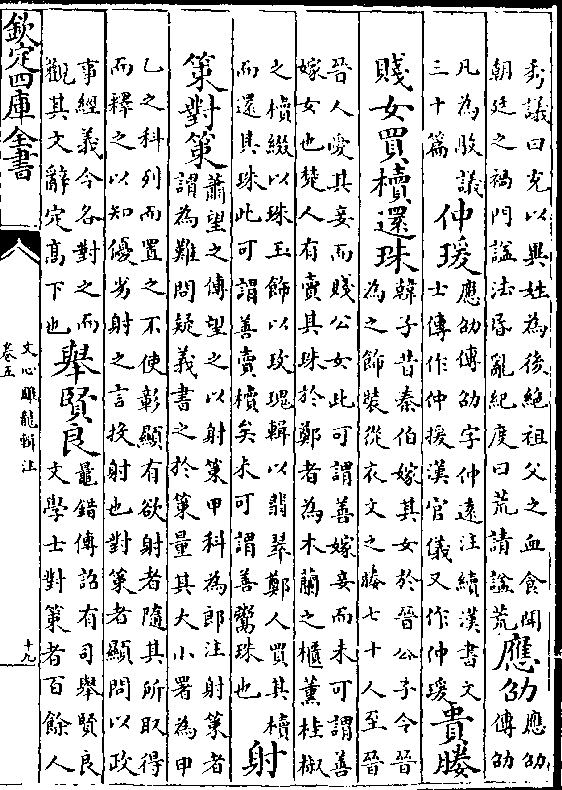 秀議曰充以異姓為後絕祖父之血食開
朝廷之禍門諡法昏亂紀度曰荒請諡荒
應劭
應劭
傳劭
凡為駮議
三十篇
仲瑗
應劭傳劭字仲遠注續漢書文
士傳作仲援漢官儀又作仲瑗
貴媵
賤女買櫝還珠
韓子昔秦伯嫁其女於晉公子令晉
為之飾裝從衣文之媵七十人至晉
晉人愛其妾而賤公女此可謂善嫁妾而未可謂善
嫁女也楚人有賣其珠於鄭者為木蘭之櫃薰桂椒
之櫝綴以珠玉飾以玫瑰輯以翡翠鄭人買其櫝
而還其珠此可謂善賣櫝矣未可謂善鬻珠也
射
策對策
蕭望之傳望之以射策甲科為郎注射策者
謂為難問疑義書之於策量其大小署為甲
乙之科列而置之不使彰顯有欲射者隨其所取得
而釋之以知優劣射之言投射也對策者顯問以政
事經義令各對之而
觀其文辭定高下也
舉賢良
鼂錯傳詔有司舉賢良
文學士對策者百餘人
欽定四庫全書
文心雕龍輯注
卷五
十九